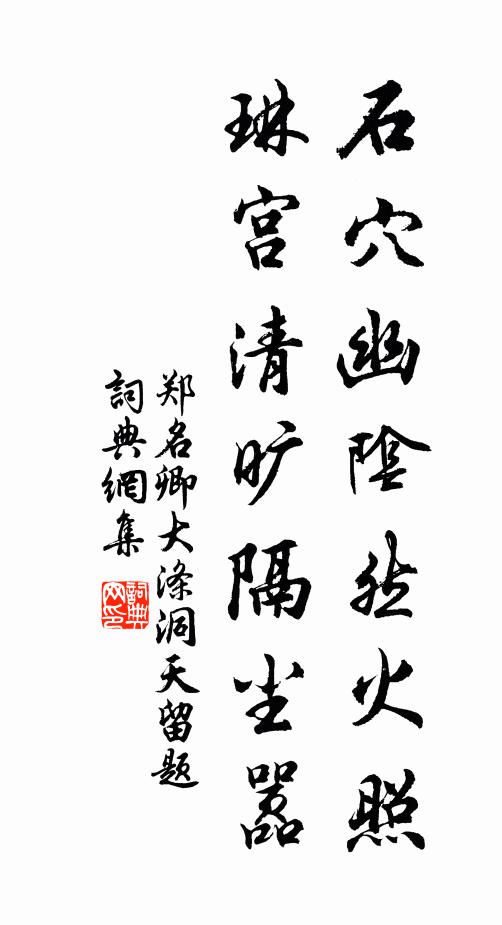 石穴幽陰然火照
琳宫清旷隔尘嚣
郑名卿大涤洞天留题
詞典網集
詞典网印